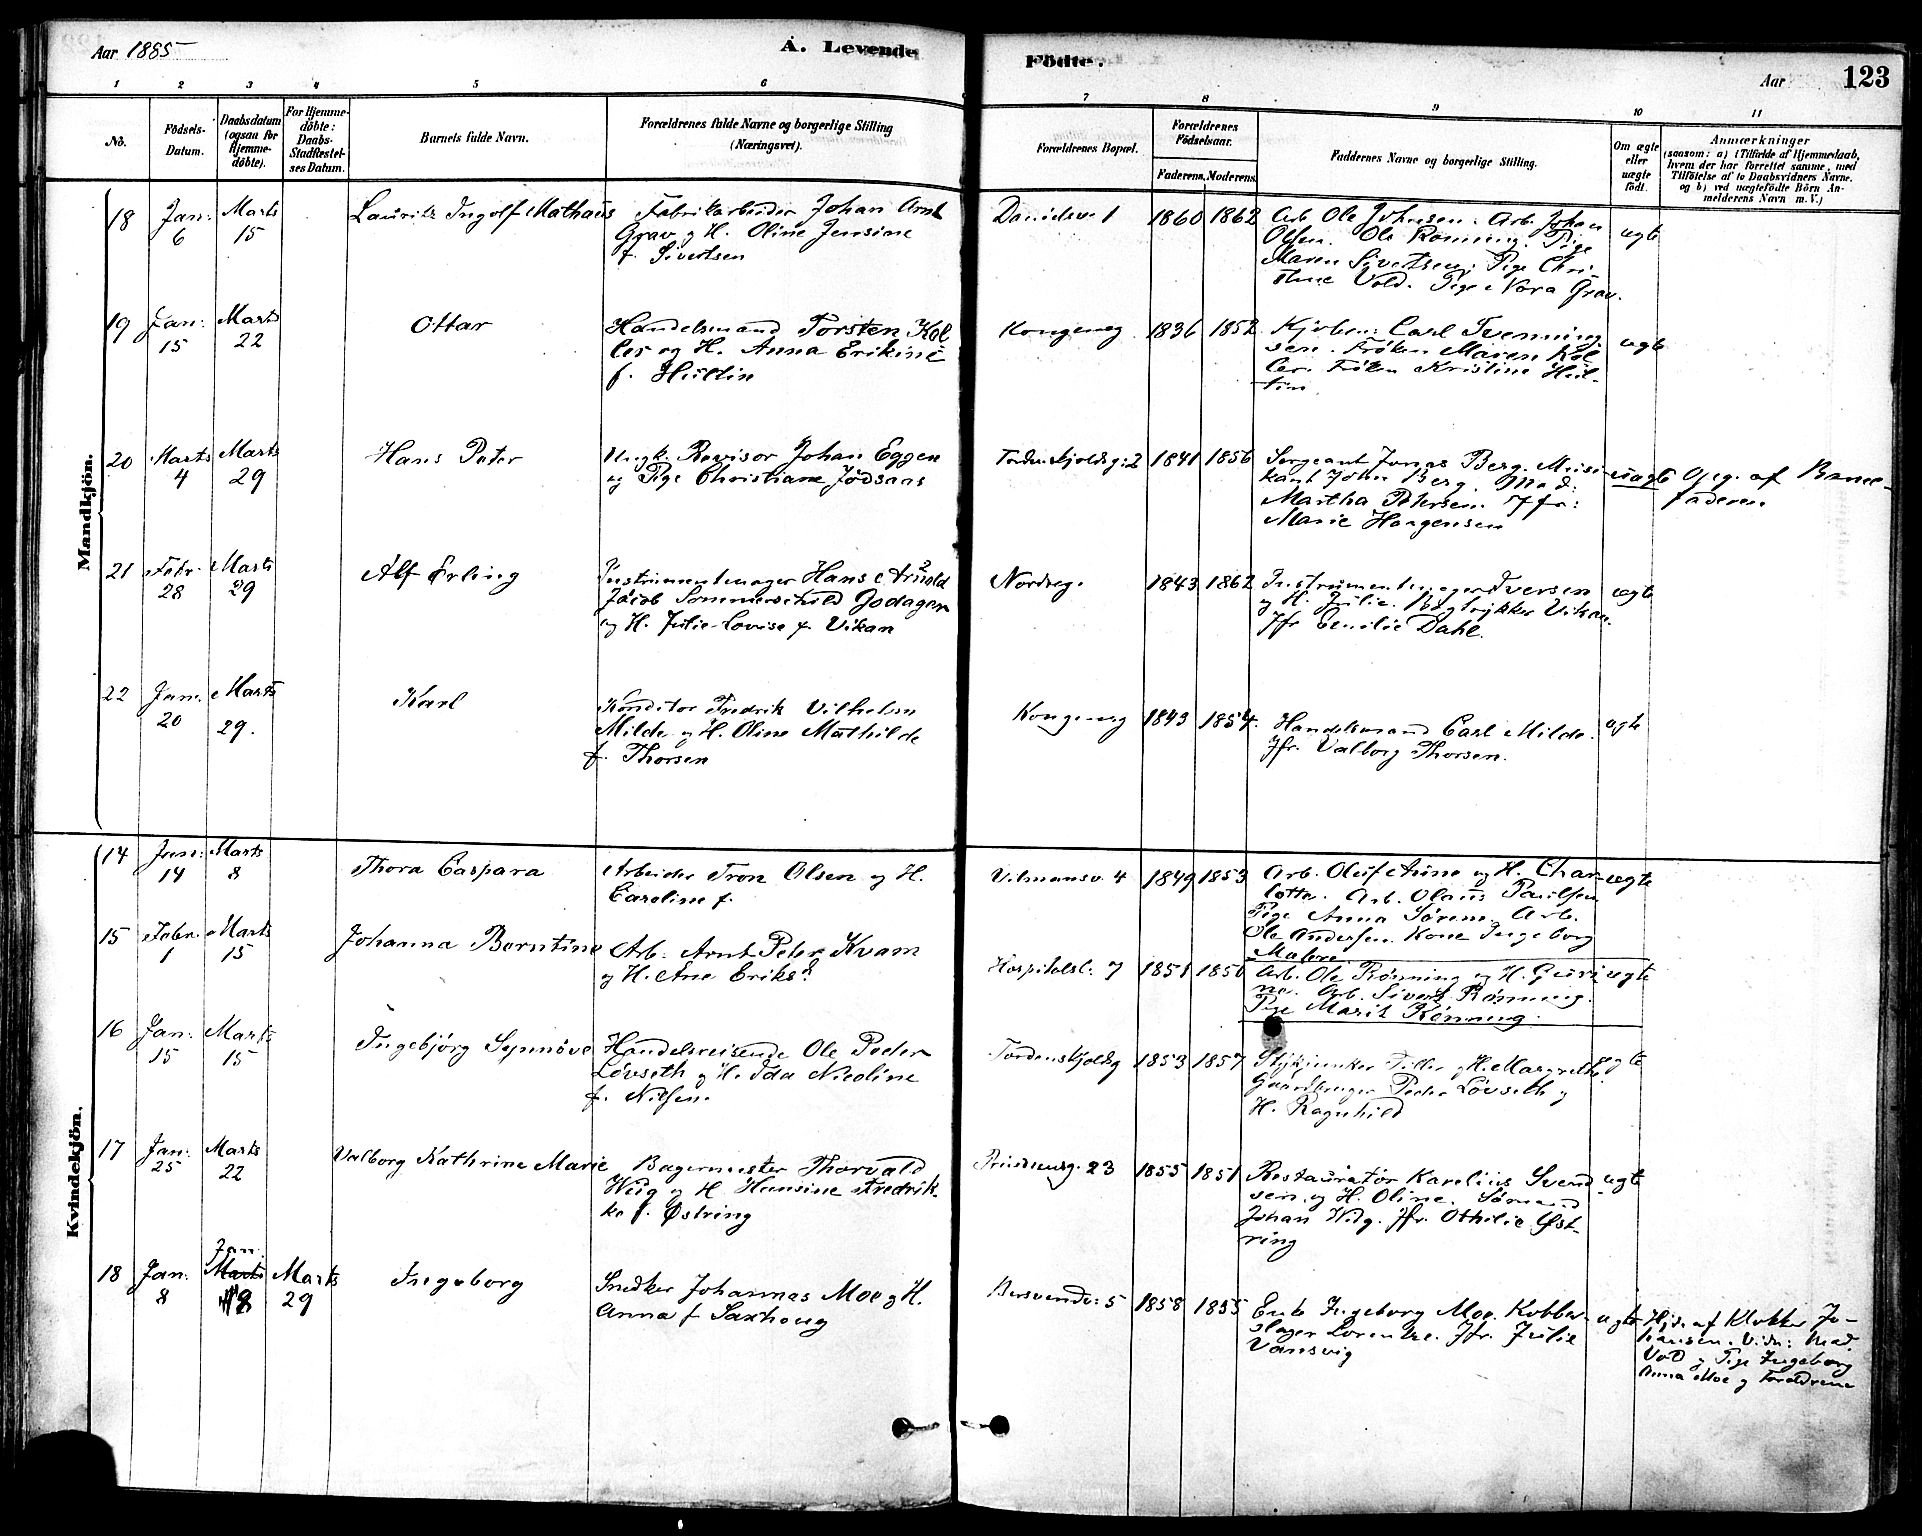 Aar 1885
A. Levende
Födte.
Aar
123
1 2 3 4 5 6 7 8 9 10 11
No.
Födsels-
Datum.
Daabsdatum
(ogsaa for
Hjemme-
döbte).
For Hjemme-
döbte:
Daabs-
Stadfæstel-
ses Datum.
Barnets fulde Navn.
Forældrenes fulde Navne og borgerlige Stilling
(Næringsvei).
Forældrenes Bopæl.
Forældrenes
Födselsaar.
Faderens. Moderens.
Faddernes Navne og borgerlige Stilling.
Om ægte
eller
uægte
födt.
Anmærkninger
(saasom: a) i Tilfælde af Hjemmedaab,
hvem der har forrettet samme, med
Tilföielse af to Daabsvidners Navne.
og b) ved uægtefödte Börn An-
melderens Navn m. V.)
Mandkjön.
18
Jan.
6
Marts
15
Lauritz Ingolf Mathæus
Fabrikarbeider Johan Arnt
Grav og H. Oline Jensine
f. Sivertsen
Danidsv. 1
1860
1862
Arb. Ole Johnsen. Arb. Johan
Olsen. Ole Rønning. Pige
Maren Sivertsen. Pige Chri-
stine Vold. Pige Nora Grav.
ægte
19
Jan.
15
Marts
22
Ottar
Handelsmand Torsten Kol
ler og H. Anna Erikine
f. Hultin
Kongensg
1836
1852
Kjøbm. Carl Svenning
sen. Frøken Maren Kol
ler. Frøken Kristine Hul-
tin
ægte
20
Marts
4
Marts
29
Hans Peter
Ungk. Revisor Johan Eggen
og Pige Christiane Jødsaas
Tordenskjoldsg: 2
1841
1856
Sergeant Jonas Berg. Musi
kant John Berg. Mad:
Martha Petersen. Jfr:
Marie Haagensen
uægte
Opg. af Barne-
faderen
21
Febr.
28
Marts
29
Alf Erling
Instrumentmager Hans Arnold
Jacob Sommerschild Jodager
og H. Julie Lovise f. Vikan
Nordreg.
1843
1862
Instrumentmager Iversen
og H. Julie. Bogtrykker Vikan.
Jfr Emilie Dahl.
ægte
22
Jan.
20
Marts
29.
Karl
Konditor Fredrik Vilhelm
Milde og H. Oline Mathilde
f. Thorsen
Kongensg
1843
1854.
Handelsmand Carl Milde.
Jfr. Valborg Thorsen.
ægte
Kvindekjön.
14
Jan:
14
Marts
8
Thora Caspara
Arbeider Tron Olsen og H.
Caroline f.
Vilmansv. 4
1849
1853
Arb. Oluf Aune og H. Char-
lotte. Arb. Olaus Paulsen
Pige Anna Sørem. Arb.
Ole Andersen. Kone Ingeborg
Malvei
ægte
15
Febr.
1
Marts
15
Johanna Berntine
Arb. Arnt Peter Kvam
og H. Ane Eriksd.
Hospitalsl. 7
1851
1850
Arb. Ole Rønning og H. Guri
Arb. Sivert Rønning.
Pige Marit Rønning.
ægte
16
Jan.
15
Marts
15
Ingebjörg Synnöve
Handelsreisende Ole Peder
Løvseth og H. Ida Nicoline
f. Nilsen.
Tordenskjoldsg
1853
1857
Stykjunker Tiller og H. Margrethe.
Gaardbruger Peder Løvseth og
H. Ragnhild
17
Jan:
25
Marts
22
Valborg Kathrine Marie
Bagermester Thorvald
Weig og H Hansine Fredrik-
ke f. Østring
Prindsensg. 23
1855
1851
Restauratør Karelius Svend
sen og H. Oline. Sømand
Johan Wiig. Jfr. Othilie Øst-
ring
ægte
18
Jan.
8
Jan.
Marts
18
Marts
29
Ingeborg
Snedker Johannas Moe og H.
Anna f Saxhoug
Bersvendv: 5
1858
1855
Enke Ingeborg Moe. Kobber-
slager Lorentze. Jfr. Julie
Vansvig
ægte
Hjd. af Klokker Jo-
hansen. Vidn: Mad.
Vold og Pige Ingeborg
Anna Moe og Foreldrene